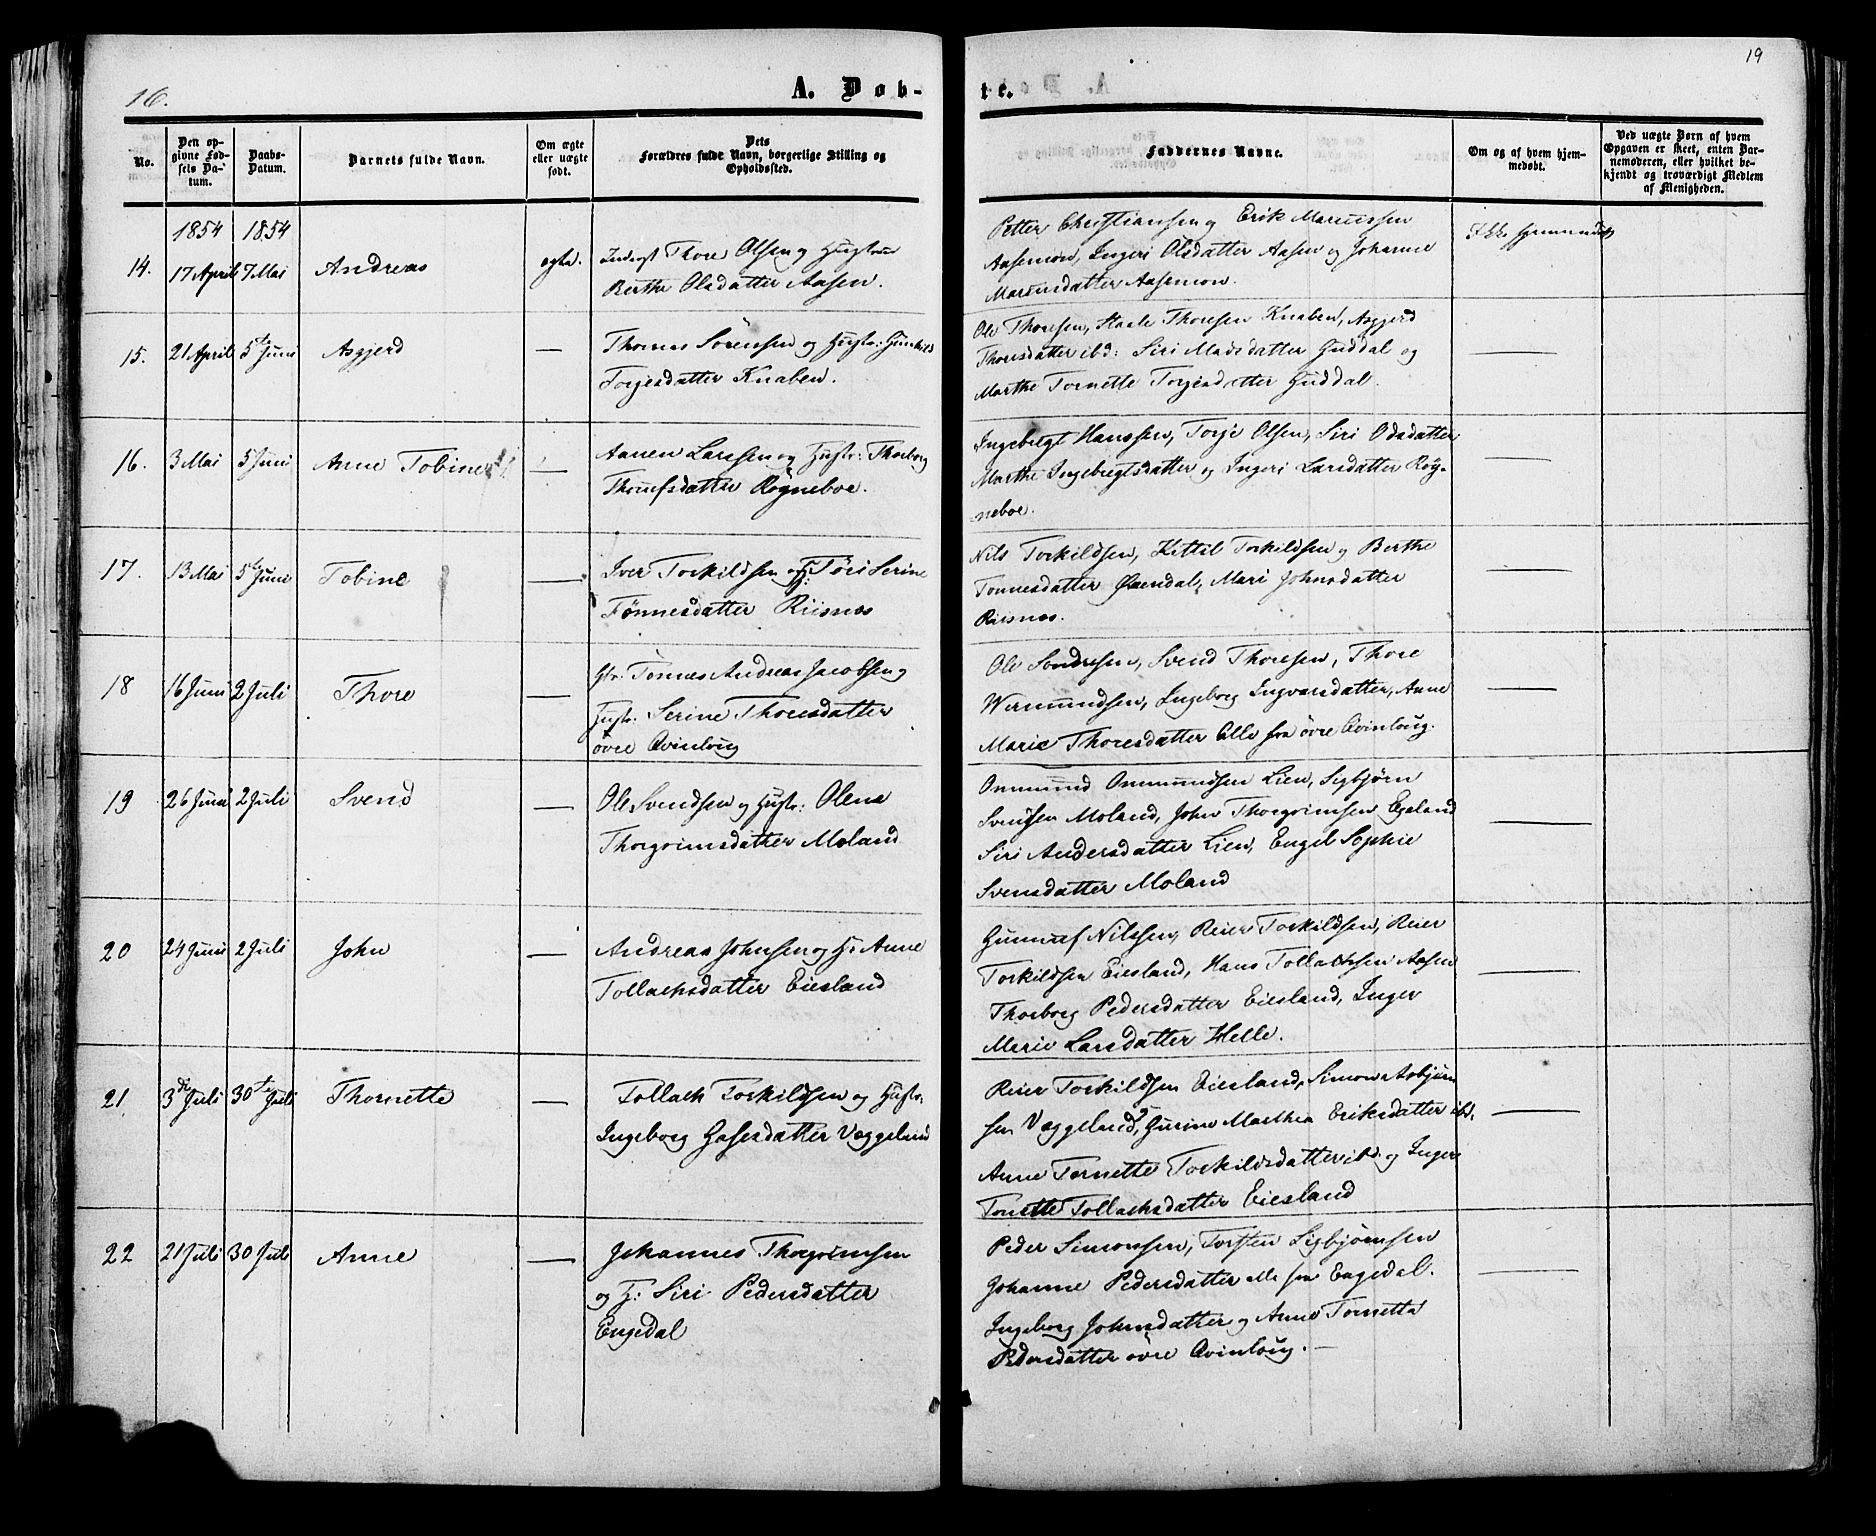 16.
A. Døb-
te.
19
No.
Den op-
givne Fød-
sels Da-
tum.
Daabs-
Datum.
Barnets fulde Navn.
Om ægte
eller uægte
født.
Dets
Forældres fulde Navn, borgerlige Stilling og
Opholdssted.
Faddernes Navne.
Om og af hvem hjem-
medøbt.
Ved uægte Børn af hvem
Opgaven er skeet, enten Bar-
nemoderen, eller hvilket be-
kjendt og troværdigt Medlem
af Menigheden.
1854 1854
14. 17 April 7 Mai Andreas ægte. Thore Olsen og Hustrue
Berthe Olsdatter Aasen.
Petter Christiansen og Erik Mariussen
Aasemon, Ingeri Olsdatter Aasen og Johanne
Mariusdatter Aasemon.
Ikke hjemmedøbt
15. 21 April 5te Juni Asgjerd — Thomas Sørensen og Hustr: Gunhild
Torjesdatter Knaben.
Ole Thoresen, Staale Thoresen Knaben, Asgjerd
Thoresdatter ibd: Siri Madsdatter Guddal og
Marthe Tornette Torjesdatter Guddal.
—
16. 3 Mai 5 Juni Anne Tobine — Aanen Larssen og Hustr: Thorborg
Røgneboe.
Ingebregt Hanssen, Torje Olsen, Siri Odsdatter
Marthe Ingebregtsdatter og Ingeri Larsdatter Røg-
neboe.
—
17. 13 Mai 5te Juni Tobine — Iver Torkildsen og H: Tøri Serine
Tønnesdatter Riisnæs
Nils Torkildsen, Kittil Torkildsen og Berthe
Tønnesdatter Øxendal, Mari Johnsdatter
Riisnæs.
—
18 16 Juni 2 Juli Thore — Gbr: Tønnes Andreas Jacobsen og
Hustr: Serine Thoresdatter
øvre Qvinloug
Ole Sondresen, Svend Thoresen, Thore
Wermundsen, Ingeborg Ingvarsdatter, Anne
Marie Thoresdatter Alle fra øvre Qvinloug.
—
19 26 Juni 2 Juli Svend — Ole Svendsen og Hustr: Olene
Thorgrimsdatter Moland
Ommund Ommundsen Lien, Sigbjørn
Svendsen Moland, John Thorgrimsen Egeland
Siri Andersdatter Lien, Engel Sophie
Svensdatter Moland
—
20 24 Juni 2 Juli John — Andreas Johnsen og H: Anne
Tollachsdatter Eiesland
Gunnuf Nilssen, Reier Torkildsen, Reier
Torkildsen Eiesland, Hans Tollachsen Aasen
Thorborg Pedersdatter Eiesland, Inger
Marie Larsdatter Helle.
—
21 3die Juli 30te Juli Thornette — Tollach Torkildsen og Hustr:
Ingeborg Aasesdatter Væggeland
Reier Torkildsen Eiesland, Simon Asbjørn
sen Væggeland, Gurine Marthea Eriksdatter ibd.
Anne Tornette Torkildsdatter ibd. og Inger
Tonette Tollachsdatter Eiesland
—
22 21 Juli 30 Juli Anne — Johannes Thorgrimsen
og H: Siri Pedersdatter
Engedal
Peder Simonsen, Torsten Sigbjørnsen
Johanne Pedersdatter alle fra Engedal.
Ingeborg Johnsdatter og Anne Tornetta
Pedersdatter øvre Qvinloug. —
—